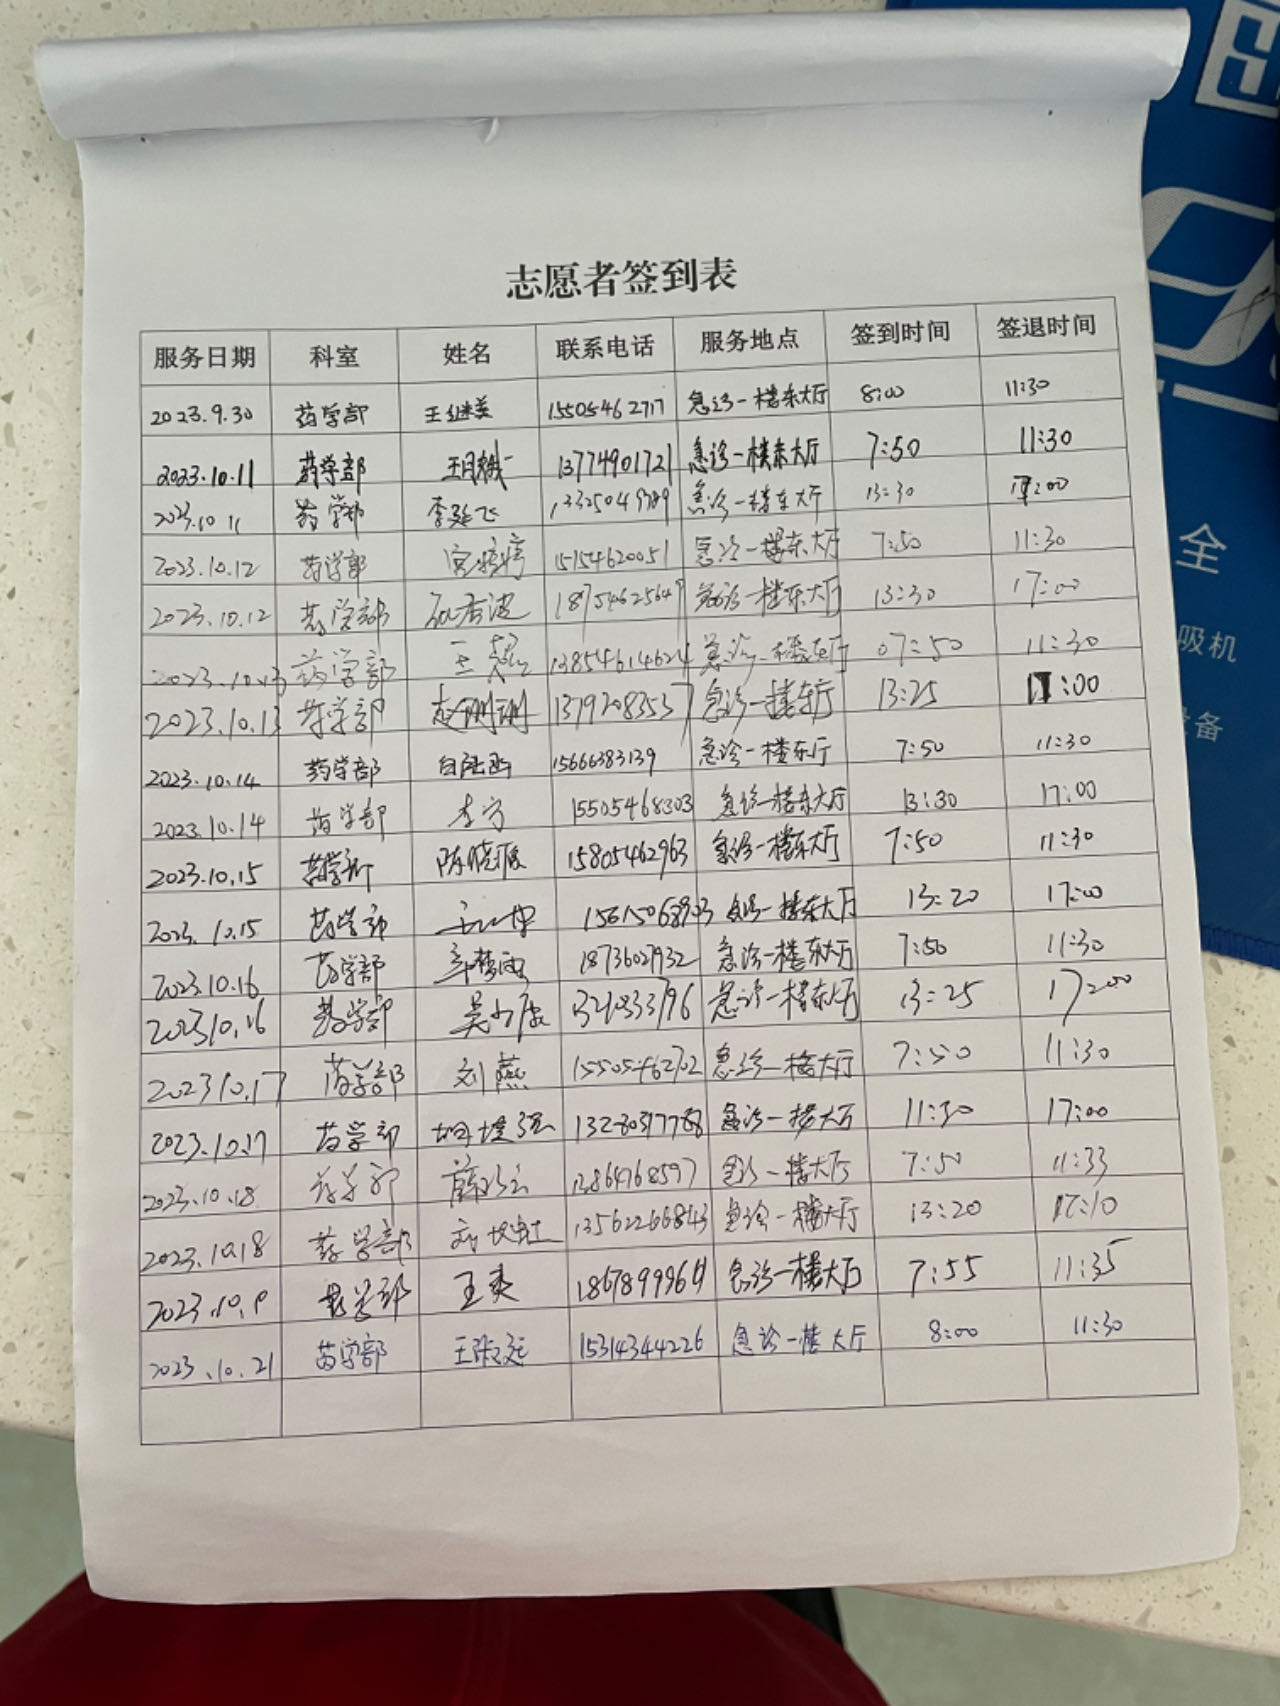 志愿者签到表
服务日期 科室 姓名 联系电话 服务地点 签到时间 签退时间
2023.9.30 药学部 王继美 15505462717 急诊一楼东大厅 8:00 11:30
2023.10.11 药学部 13774901721 急诊一楼东大厅 7:50 11:30
2023.10.11 药学部 李延飞 急诊一楼东大厅 13:30 17:00
2023.10.12 药学部 宫婷婷 15154620051 急诊一楼东大厅 7:50 11:30
2023.10.12 药学部 急诊一楼东大厅 13:30 17:00
2023.10.13 药学部 王 13854614624 急诊一楼东大厅 07:50 11:30
2023.10.13 药学部 赵珊珊 13792083537 急诊一楼东厅 13:25 17:00
2023.10.14 药学部 15666383139 急诊一楼东厅 7:50 11:30
2023.10.14 药学部 李宁 15505468303 急诊一楼东大厅 13:30 17:00
2023.10.15 药学部 陈晓丽 15805462963 急诊一楼东大厅 7:50 11:30
2023.10.15 药学部 15615068903 急诊一楼东大厅 13:20 17:00
2023.10.16 药学部 18736027932 急诊一楼东大厅 7:50 11:30
2023.10.16 药学部 急诊一楼东大厅 13:25 17:00
2023.10.17 药学部 刘燕 15505462702 急诊一楼大厅 7:50 11:30
2023.10.17 药学部 胡 强 急诊一楼大厅 11:30 17:00
2023.10.18 药学部 薛 13864768597 急诊一楼大厅 7:50 11:33
2023.10.18 药学部 13562266843 急诊一楼大厅 13:20 17:10
药学部 王爽 急诊一楼大厅 7:55 11:35
2023.10.21 药学部 15314344226 急诊一楼大厅 8:00 11:30
全
吸机
设备